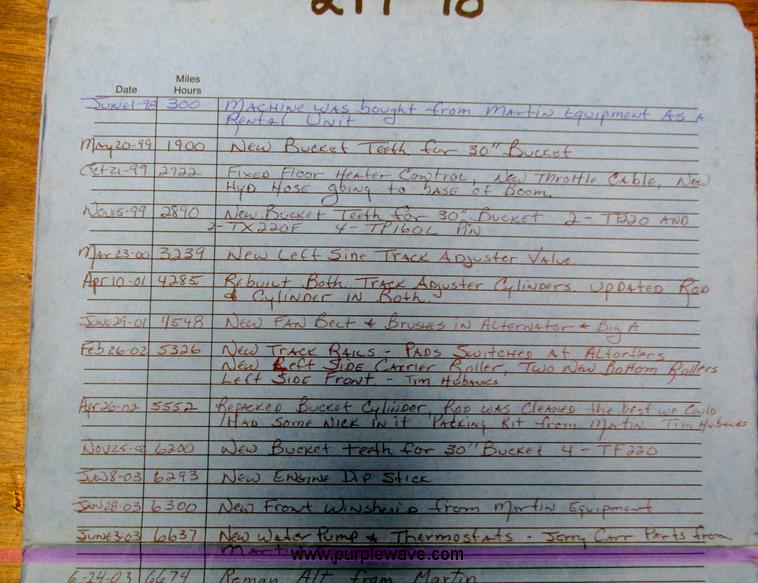 Date Miles Hours
June1-98 300 Machine was bought from Martin Equipment As A
Rental Unit
May20-99 1900 New Bucket Teeth for 30" Bucket
Oct21-99 2722 Fixed Floor Heater Control, New Throttle Cable, New
Hyd Hose going to base of Boom.
Nov15-99 2890 New Bucket Teeth for 30" Bucket 2- TP220 AND
2-TX220F 4-TP160L Pin
Mar23-00 3239 New Left Sine Track Adjuster Valve
Apr10-01 4285 Rebuilt Both Track Adjuster Cylinders. Updated Rod
& Cylinder in Both.
June29-01 4548 New Fan Belt & Brushes in Alternator & Big A
Feb26-02 5326 New Track Rails - Pads Switched At Altorfers
New Left Side Carrier Roller, Two New Bottom Rollers
Left Side Front - Tim Hubanks
Apr26-02 5552 Repacked Bucket Cylinder, Rod was Cleaned the best we Could
/Had Some Nick in it Packing Kit from Martin. Tim Hubanks
Nov25-02 6200 New Bucket teeth for 30" Bucket 4-TF220
Jan8-03 6293 New Engine Dip Stick
Jan28-03 6300 New Front Winshield from Martin Equipment
June3-03 6637 New Water Pump & Thermostats - Jerry Carr Parts from
Martin
www.purplewave.com
6-24-03 6674 Reman Alt from Martin